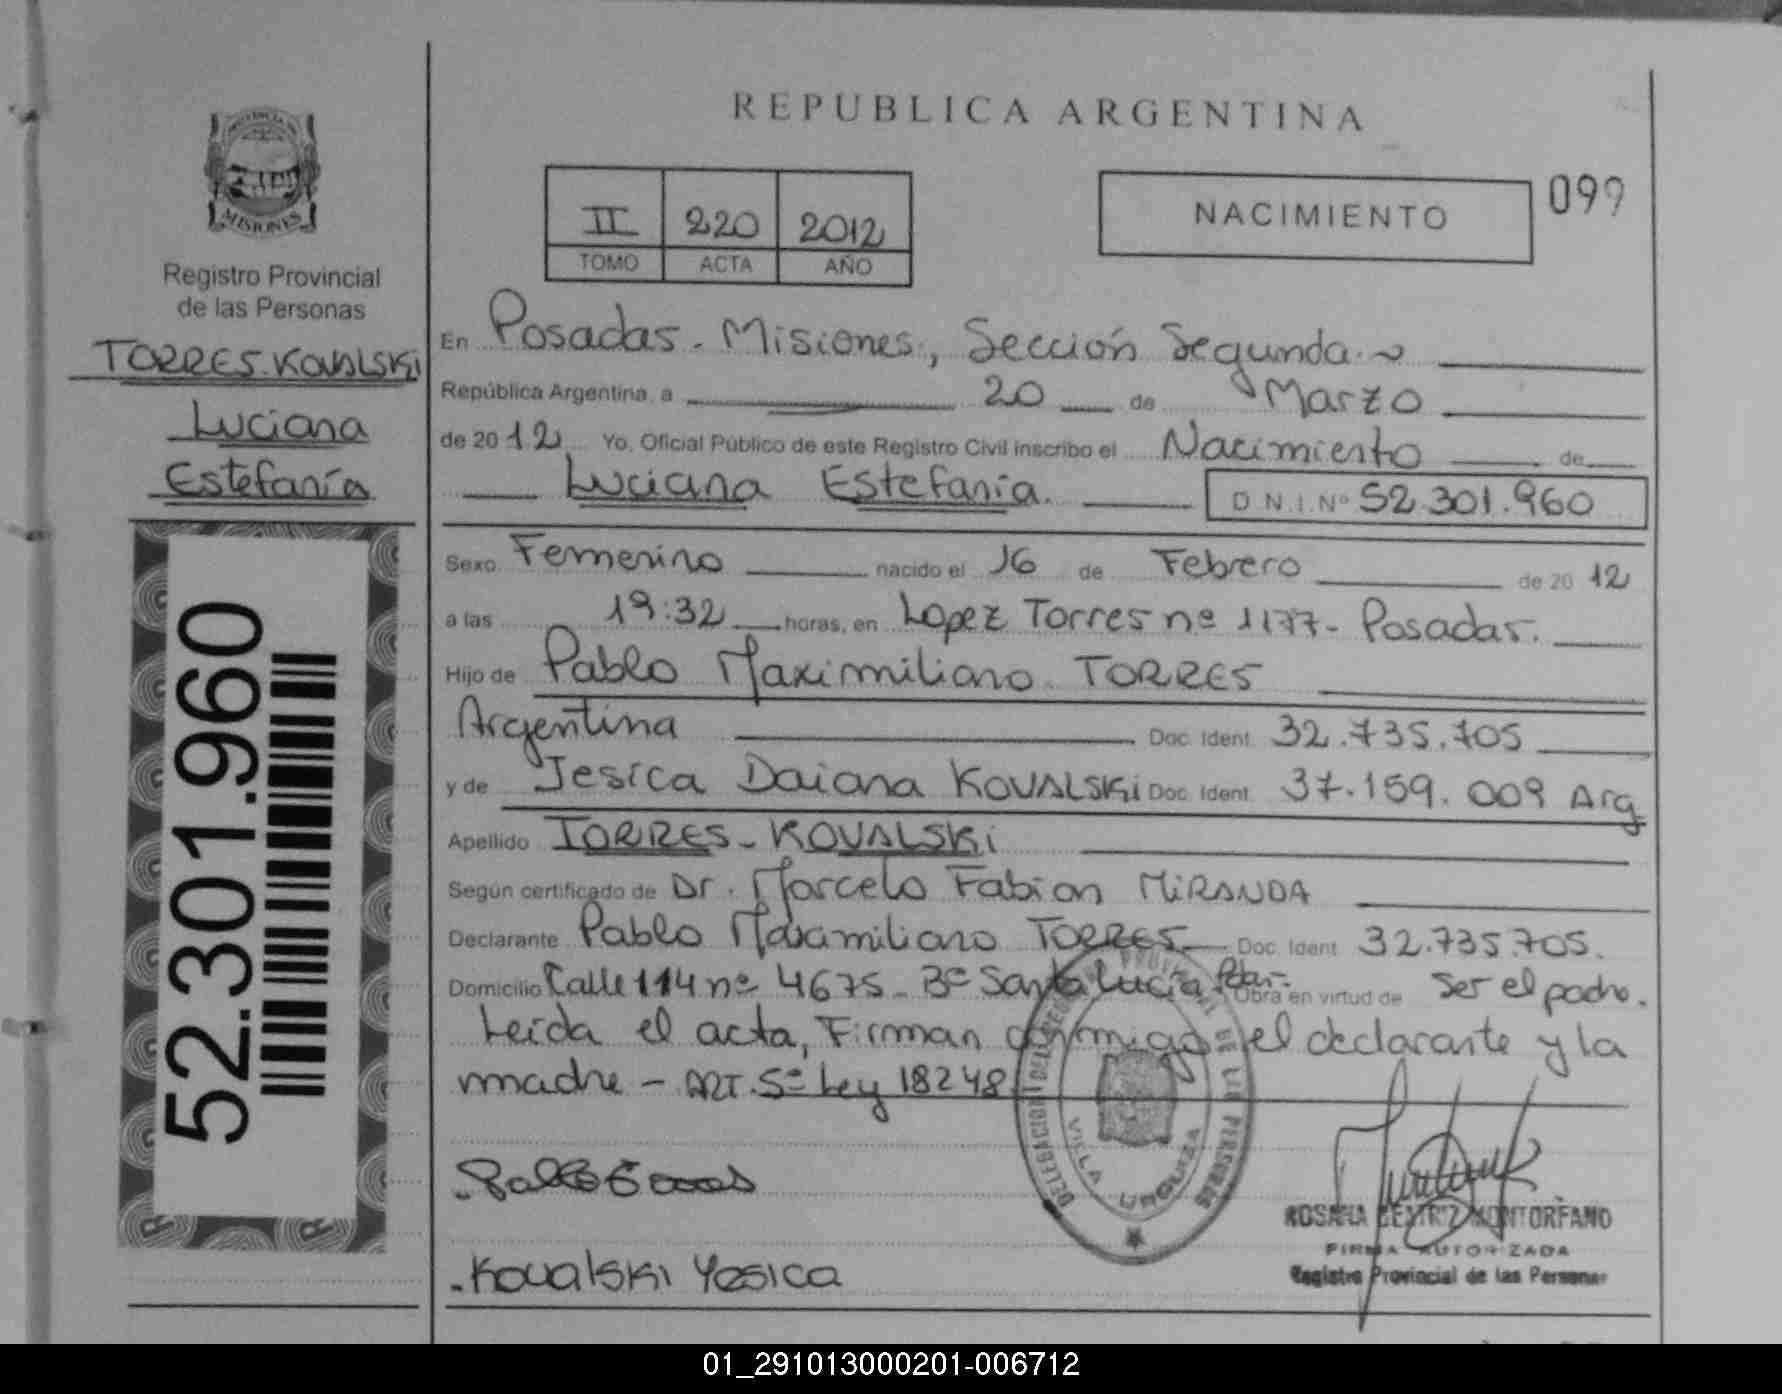 REPUBLICA ARGENTINA
PROVINCIA DE
MISIONES
Registro Provincial
de las Personas
TORRES-KOVALSKI
Luciana
Estefanía
52.301.960
II 220 2012
TOMO ACTA AÑO
NACIMIENTO
099
En Posadas - Misiones, Sección Segunda.
República Argentina, a 20 de Marzo
de 2012 Yo, Oficial Público de este Registro Civil inscribo el Nacimiento de
Luciana Estefanía. D.N.I. Nº 52.301.960
Sexo Femenino nacido el 16 de Febrero de 2012
a las 19:32 horas, en Lopez Torres nº 1177 - Posadas.
Hijo de Pablo Maximiliano TORRES
Argentina Doc. Ident. 32.735.705
y de Jesica Daiana KOVALSKi Doc. Ident. 37.159.009 Arg
Apellido TORRES - KOVALSKi
Según certificado de Dr. Marcelo Fabian MiRANDA
Declarante Pablo Maximiliano TORRES Doc. Ident. 32.735.705.
Domicilio Calle 114 nº 4675 - Bº Santa Lucia Pdas.- Obra en virtud de Ser el padre.
Leída el acta, Firman conmigo el declarante y la
madre - ART. 5º Ley 18248
DELEGACION DEL REGISTRO PROVINCIAL DE LAS PERSONAS
VILLA URQUIZA
ROSANA BEATRIZ MONTORFANO
FIRMA AUTORIZADA
Registro Provincial de las Personas
Kovalski Yesica
01_291013000201-006712